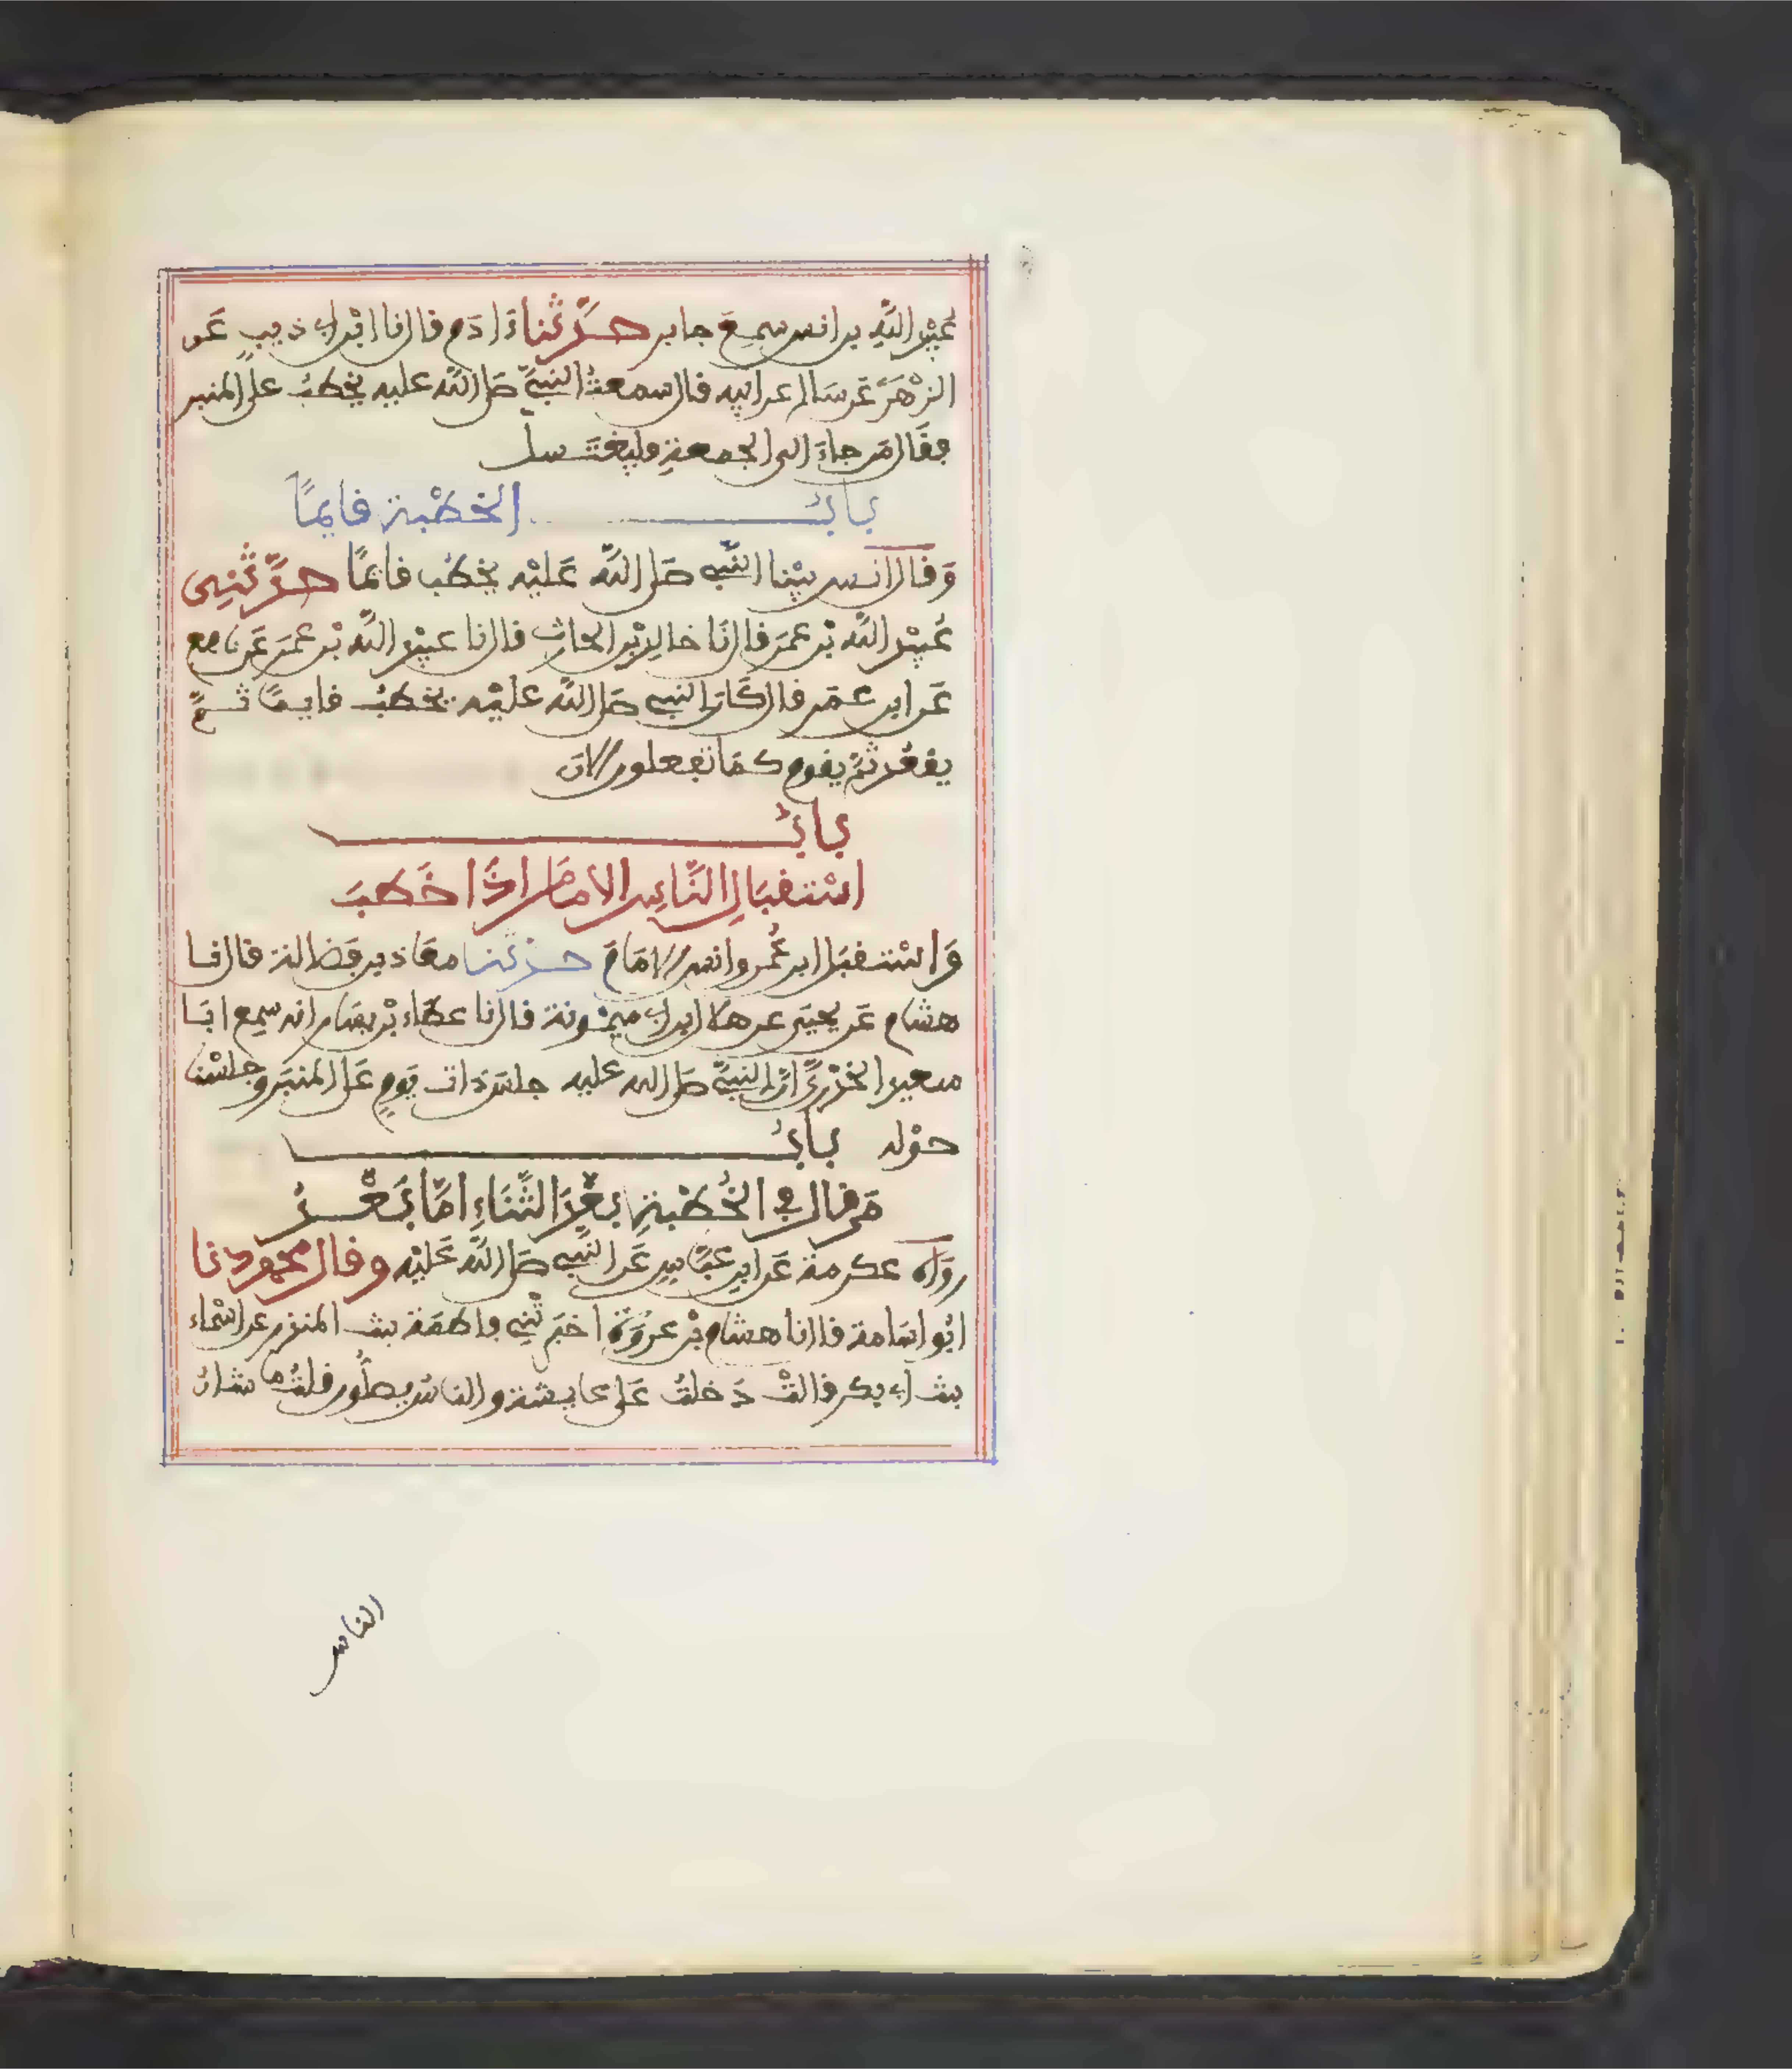 عُبَيْدِ اللَّهِ بن انس سمِعَ جابر حَدَّثَنا ءَادَم قال نا ابْن ابي ذيبٍ عَن
الزُّهْرِيِّ عَن سَالم عن ابيه قال سمعتُ النبيَّ صَلى اللَّه عليه يخطبُ على المنبر
فقَال مَن جاءَ الى الجمعةِ فليغتَسل
بابُ الخطْبة قايمًا
وَقال انس بيْنا النَّبي صَلى اللَّه عَليْه يخطُب قايمًا حدَّثنِى
عُبيْد اللَّه بْن عمَر قال نَا خالد بْن الحارث قال نا عبيْد اللَّه بْن عمَر عَن نافع
عَن ابن عمَر قال كَانَ النبي صَلى اللَّه عليْه يخطبُ قايمًا ثمَّ
يقعُد ثمَّ يقوم كمَا تفعلون الانَ
بابُ
اسْتقبَالِ النَّاسِ الامَامَ اذَا خَطبَ
وَاسْتقبَل ابن عُمر وانس الامَامَ حدثنا معَاذ بن فَضالة قال نا
هشام عَن يحيَى عن هلال بن ابي ميمُونة قال نا عطَاء بْن يسَار انه سمِع ابَا
سعيد الخدْريَّ انَّ النبيَّ صَلى الله عليه جلسَ ذات يَومٍ عَلى المنبَر وجلسْنا
حوْله بابُ
مَن قال في الخُطْبةِ بعْدَ الثَّنَاءِ امَّا بَعْدُ
روَاه عكرمة عَن ابن عبَّاسٍ عَن النَّبي صَلى اللَّه عَليْه وقال محمود نا
ابُو اسَامة قال نا هشام بْن عروَة اخبَرتْنِي فاطمَة بنت المنذر عن اسْماء
بنت ابي بكر قالتْ دَخلتُ عَلى عايشة والناسُ يصلُّون قلتُ ما شانُ
الناس